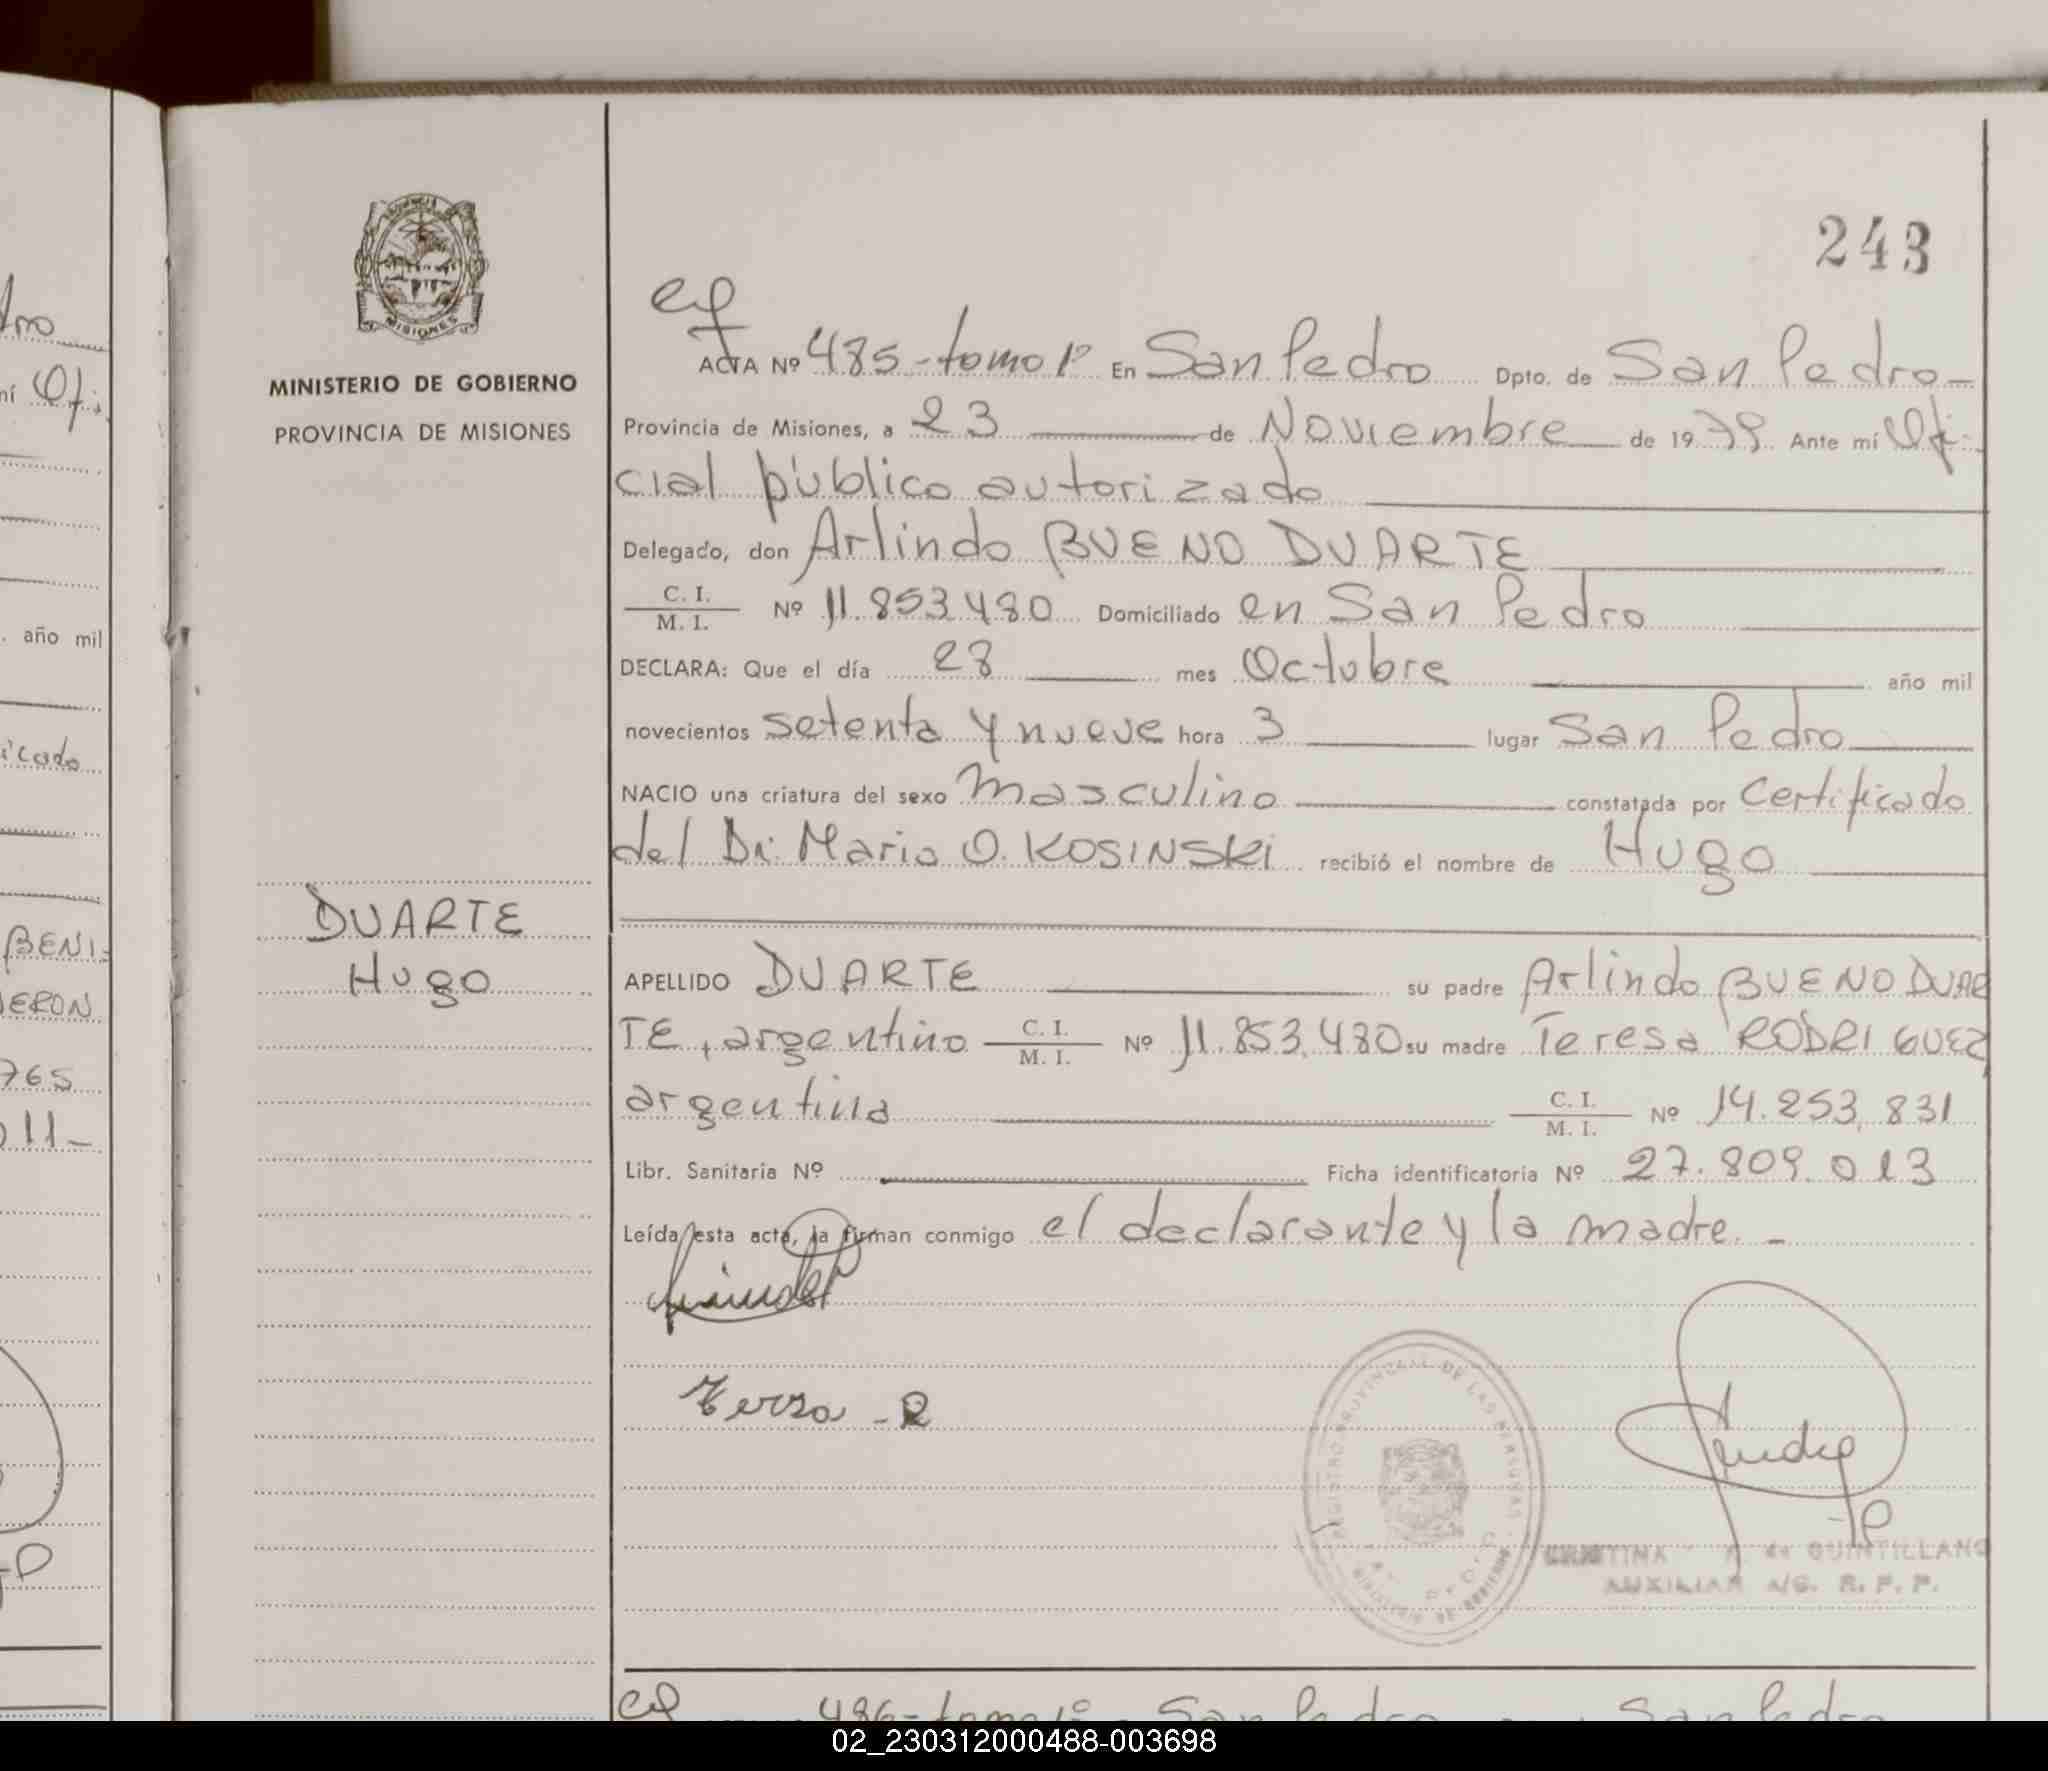 243
MINISTERIO DE GOBIERNO
PROVINCIA DE MISIONES
MISIONES
DUARTE
Hugo
ACTA Nº 485-tomo 1º En San Pedro Dpto. de San Pedro-
Provincia de Misiones, a 23 de Noviembre de 1979 Ante mí Ofi-
cial público autorizado
Delegado, don Arlindo BUENO DUARTE
C. I. / M. I. Nº 11.853.480 Domiciliado en San Pedro
DECLARA: Que el día 28 mes Octubre año mil
novecientos setenta y nueve hora 3 lugar San Pedro
NACIO una criatura del sexo masculino constatada por Certificado
del Dr. Mario O. KOSINSKI recibió el nombre de Hugo
APELLIDO DUARTE su padre Arlindo BUENO DUAR
TE, argentino C. I. / M. I. Nº 11.853.480 su madre Teresa RODRIGUEZ
argentina C. I. / M. I. Nº 14.253.831
Libr. Sanitaria Nº Ficha identificatoria Nº 27.809.013
Leída esta acta, la firman conmigo el declarante y la madre.-
REGISTRO PROVINCIAL DE LAS PERSONAS
QUINTILLANO
AUXILIAR A/C. R. P. P.
486-tomo 1º San Pedro San Pedro
tro
ní Ofi-
. año mil
icado
BENI-
DERON
765
11-
02_230312000488-003698